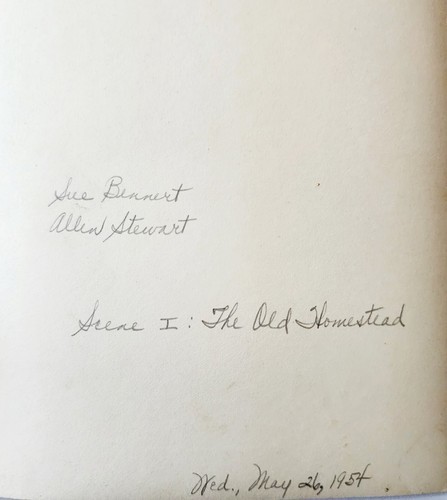 Sue Bennert
Allen Stewart
Scene I: The Old Homestead
Wed., May 26, 1954.